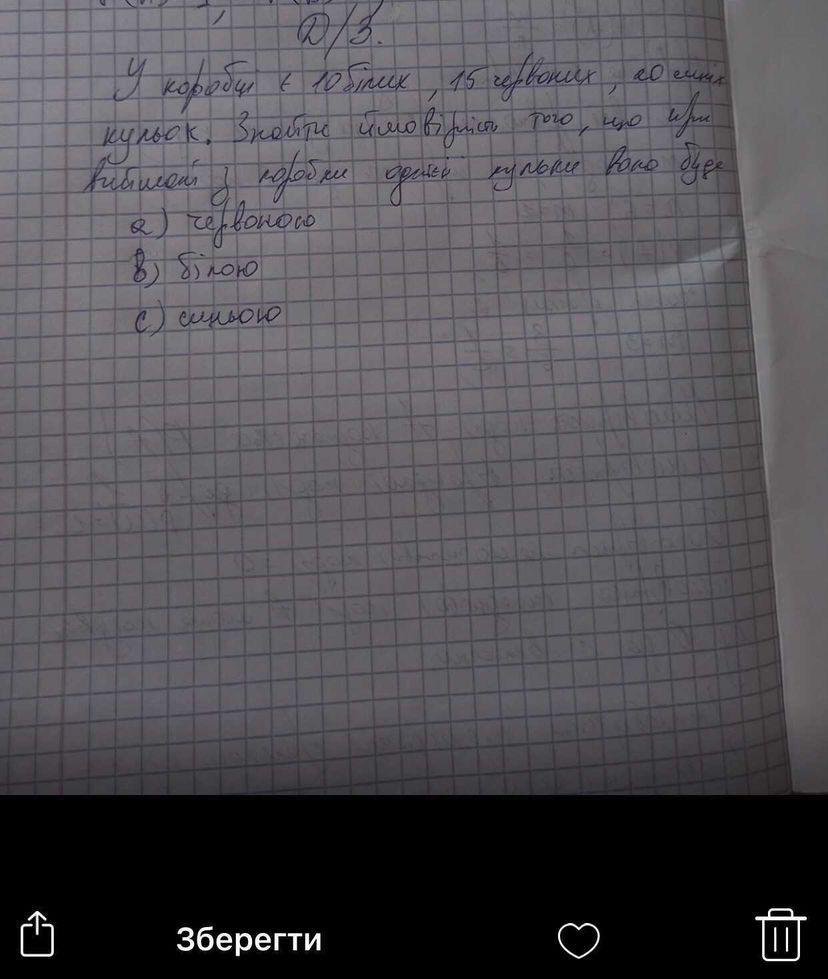 Д/З.
У коробці є 10 білих, 15 червоних, 20 синіх
кульок. Знайти ймовірність того, що при
з коробки однієї кульки вона буде
а) червоною
в) білою
с) синьою
Зберегти